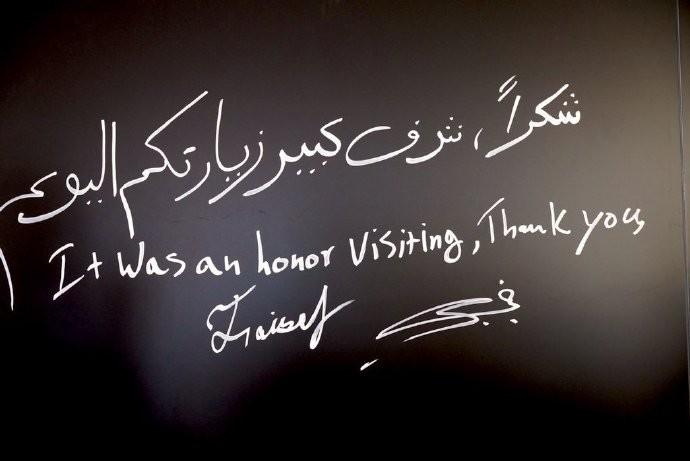 شكراً، شرف كبير زيارتكم اليوم
It was an honor visiting, Thank you,